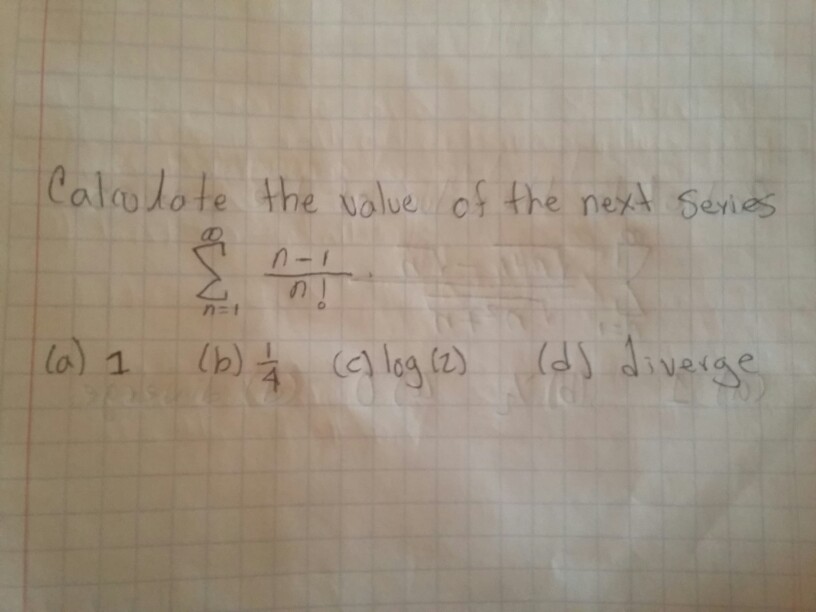 Calculate the value of the next series
∞
∑ n-1 / n!
n=1
(a) 1 (b) 1/4 (c) log(2) (d) diverge